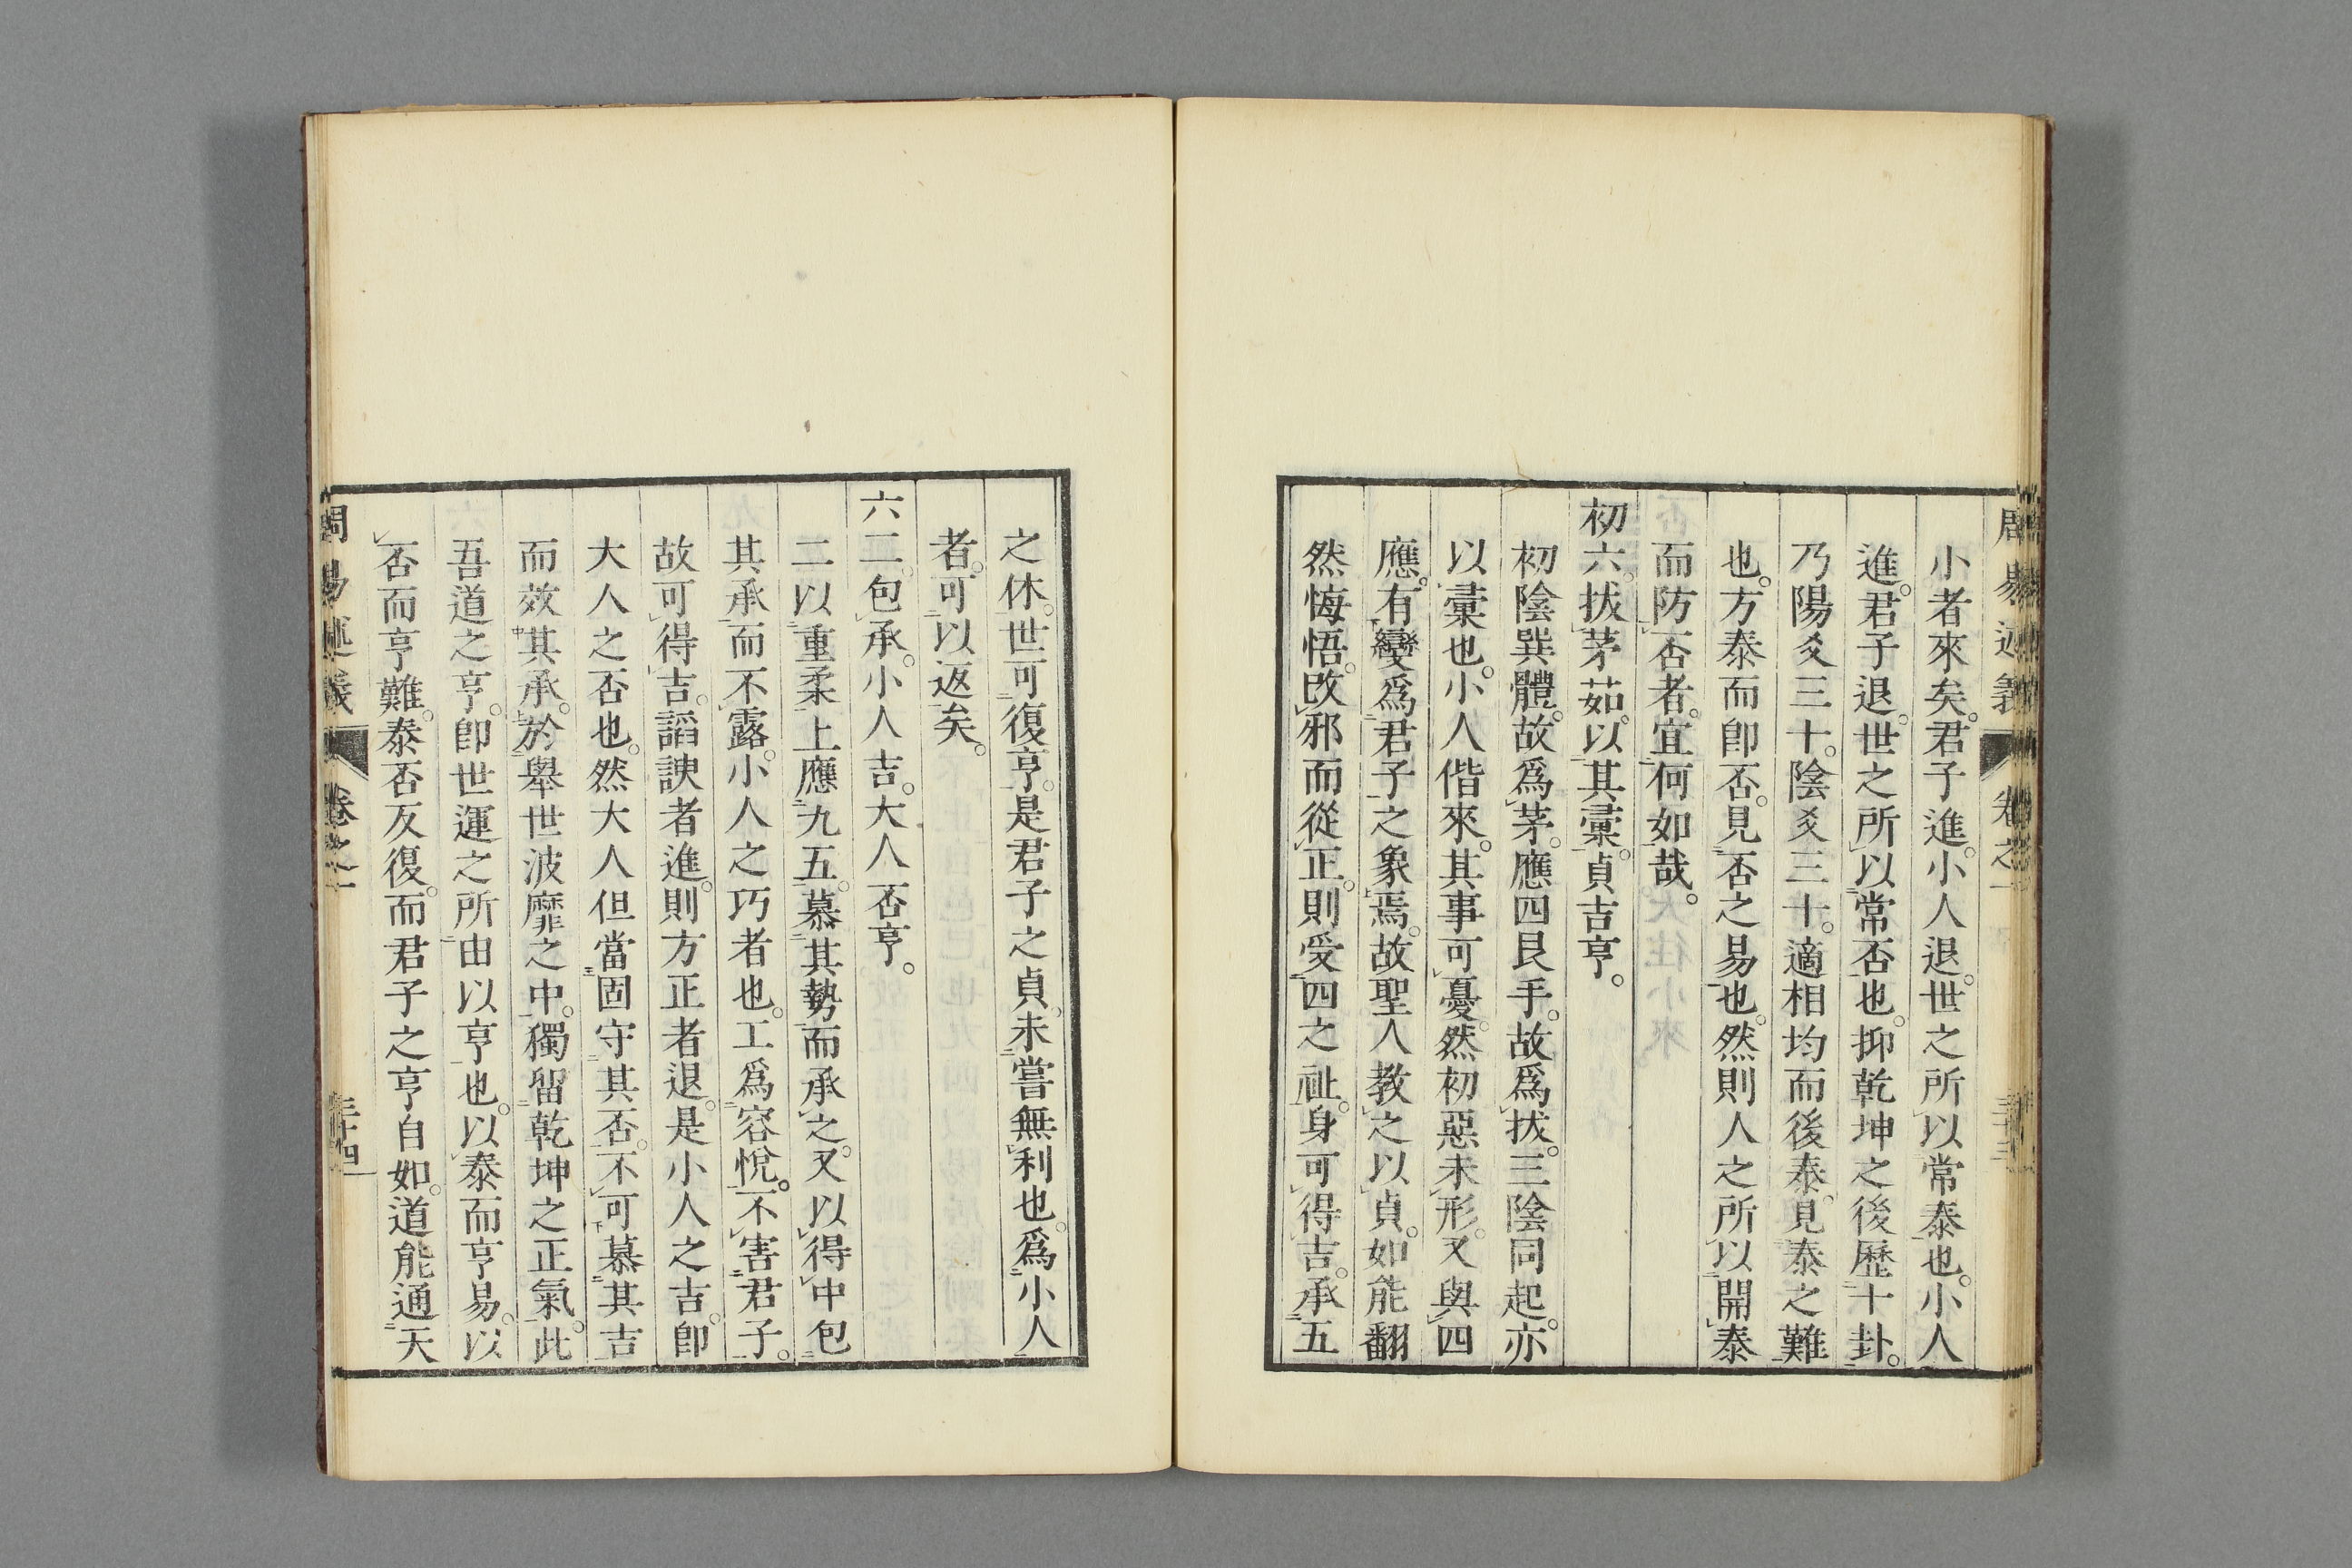 周易述義 卷之一 三十三
小者來矣。君子進。小人退。世之所以常泰也。小人
進。君子退。世之所以常否也。抑乾坤之後歷十卦。
乃陽爻三十。陰爻三十。適相均而後泰。見泰之難
也。方泰而卽否。見否之易也。然則人之所以開泰
而防否者。宜何如哉。
初六。拔茅茹。以其彙。貞吉亨。
初陰巽體。故爲茅。應四艮手。故爲拔。三陰同起。亦
以彙也。小人偕來。其事可憂。然初惡未形。又與四
應。有變爲君子之象焉。故聖人教之以貞。如能翻
然悔悟。改邪而從正。則受四之祉。身可得吉。承五
之休。世可復亨。是君子之貞。未嘗無利也。爲小人
者。可以返矣。
六二。包承。小人吉。大人否亨。
二以重柔上應九五。慕其勢而承之。又以得中包
其承而不露。小人之巧者也。工爲容悅。不害君子。
故可得吉。謟諛者進。則方正者退。是小人之吉。卽
大人之否也。然大人但當固守其否。不可慕其吉
而效其承。於舉世波靡之中。獨留乾坤之正氣。此
吾道之亨。卽世運之所由以亨也。以泰而亨易。以
否而亨難。泰否反復。而君子之亨自如。道能通天
周易述義 卷之一 三十四